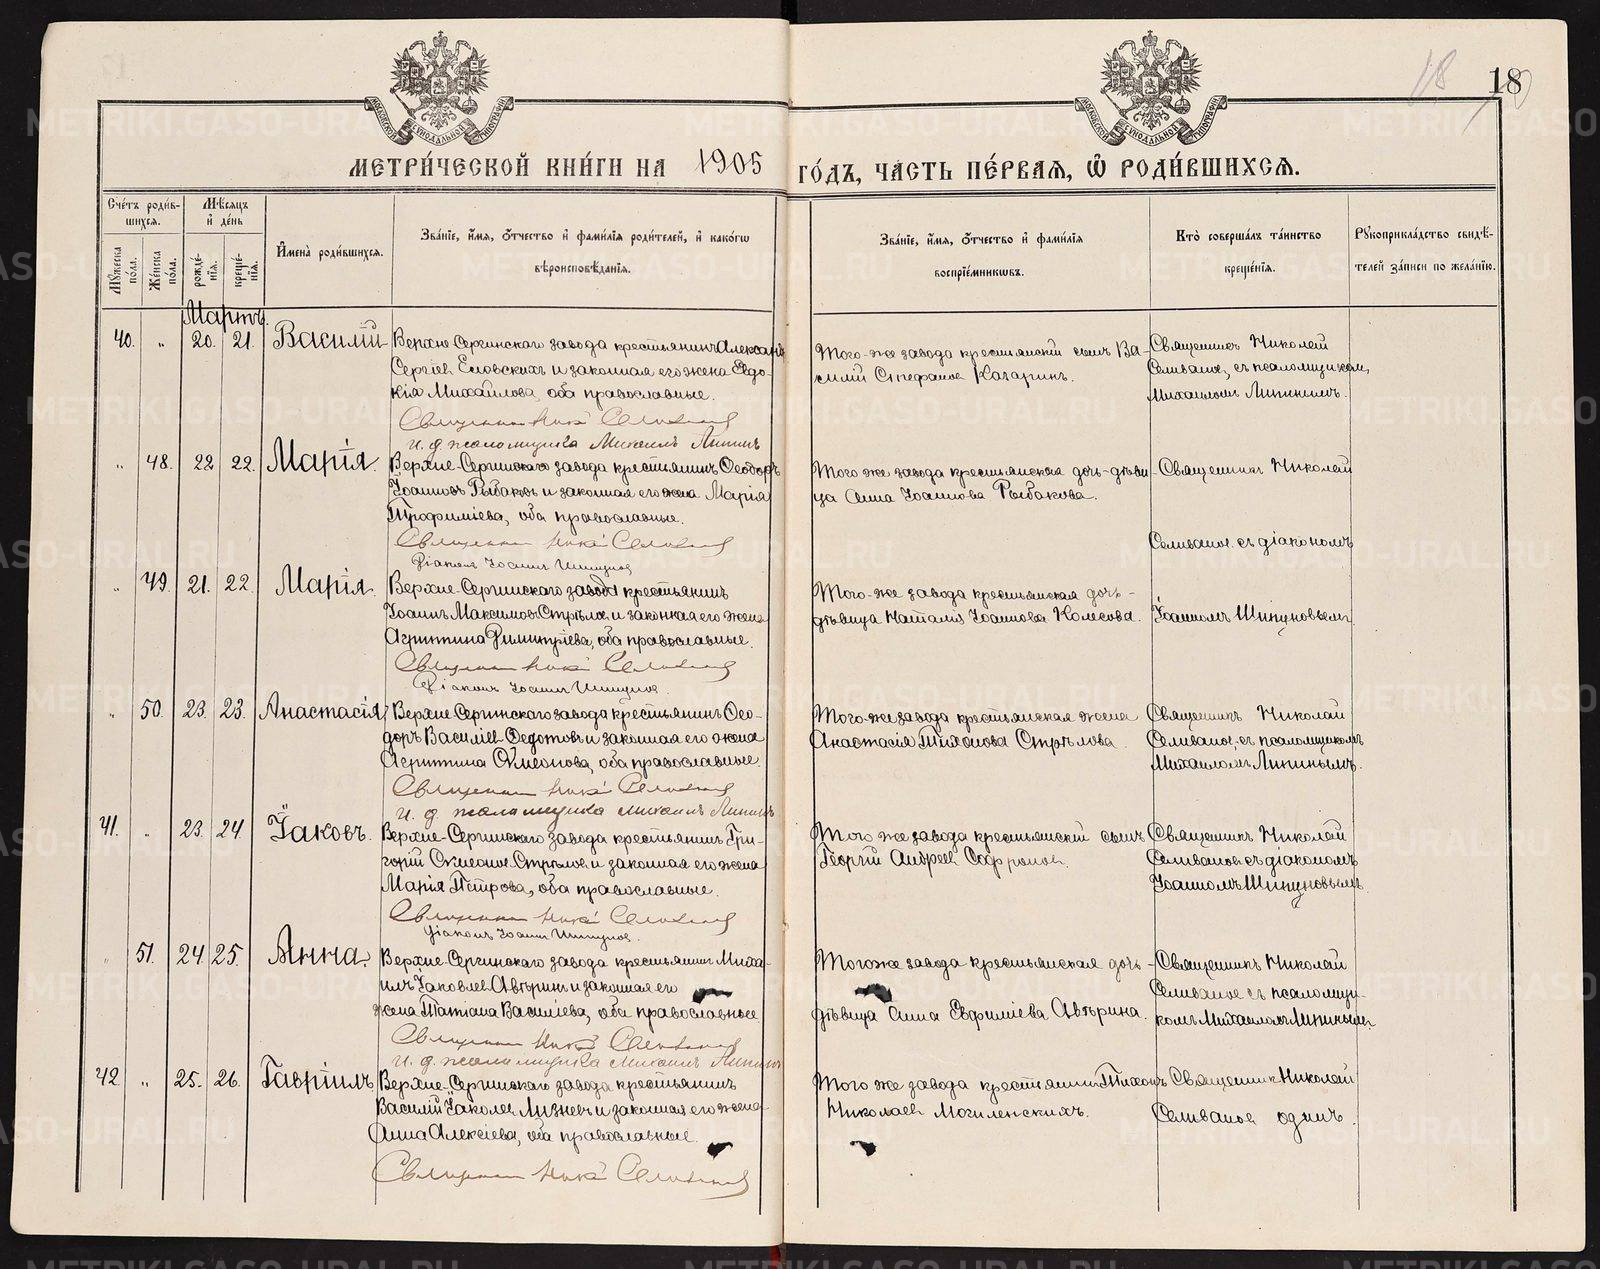 18
18
МЕТРИ́ЧЕСКОЙ КНИ́ГИ НА 1905 ГО́ДЪ, ЧА́СТЬ ПЕ́РВАЯ, Ѡ҆ РОДИ́ВШИХСЯ.
Сче́тъ роди́в-
шихся.
Мѣ́сяцъ
и҆ де́нь
Му́жеска по́ла.
Же́нска по́ла.
рожде́-
нїѧ.
креще́-
нїѧ.
И҆мена̀ роди́вшихся.
Зва́нїе, и҆́мя, ѻ҆́тчество и҆ фами́лїя роди́телей, и҆ како́гѡ
вѣроисповѣ́данїя.
Зва́нїе, и҆́мя, ѻ҆́тчество и҆ фами́лїя
воспрїе́мникѡвъ.
Кто̀ соверша́лъ та́инство
креще́нїя.
Рукоприкла́дство свидѣ́-
телей за́писи по жела́нїю.
Мартъ.
40. „ 20. 21. Василій
Верхне-Сергинскаго завода крестьянинъ Алексѣй
Сергіев Еловскихъ и законная его жена Евдо-
кія Михайлова, оба православные.
Священник Ник. Селиванов
и. д. псаломщика Михаилъ Липинъ
Того-же завода крестьянскій сынъ Ва-
силій Стефанов Качаринъ.
Священникъ Николай
Селиванов, съ псаломщикомъ
Михаиломъ Липинымъ.
„ 48. 22 22. Марія.
Верхне-Сергинскаго завода крестьянинъ Ѳеодоръ
Іоанновъ Рыбаковъ и законная его жена Марія
Трофиміева, оба православные.
Священник Ник. Селиванов
Діаконъ Іоаннъ Шипунов
Того же завода крестьянская дочь-дѣви-
ца Анна Іоаннова Рыбакова.
Священникъ Николай
Селиванов съ діакономъ
Іоанномъ Шипуновымъ
„ 49. 21. 22. Марія.
Верхне-Сергинскаго завода крестьянинъ
Іоаннъ Максимовъ Стрѣлов и законная его жена
Агриппина Димитріева, оба православные.
Священник Ник. Селиванов
Діаконъ Іоаннъ Шипунов.
Того-же завода крестьянская дочь-
дѣвица Наталія Іоаннова Колесова.
„ 50. 23. 23. Анастасія
Верхне-Сергинскаго завода крестьянинъ Ѳео-
доръ Василіев Ѳедотовъ и законная его жена
Агриппина Симеонова, оба православные.
Священник Ник. Селиванов
и. д. псаломщика Михаилъ Липинъ
Того-же завода крестьянская жена
Анастасія Тихонова Стрѣлова.
Священникъ Николай
Селиванов, съ псаломщикомъ
Михаиломъ Липинымъ.
41. „ 23. 24. Іаковъ.
Верхне-Сергинскаго завода крестьянинъ Гри-
горій Симеонов Стрѣлов и законная его жена
Марія Петрова, оба православные.
Священник Ник. Селиванов
Діаконъ Іоаннъ Шипунов.
Того же завода крестьянскій сынъ
Георгій Андреев Софронов.
Священникъ Николай
Селиванов съ діакономъ
Іоанномъ Шипуновымъ.
„ 51. 24 25. Анна.
Верхне-Сергинскаго завода крестьянинъ Миха-
илъ Іаковлев Авѣринъ и законная его
жена Татіана Василіева, оба православные.
Священник Ник. Селиванов
и. д. псаломщика Михаилъ Липинъ
Того же завода крестьянская дочь-
дѣвица Анна Евфиміева Авѣрина.
Священникъ Николай
Селиванов съ псаломщи-
комъ Михаиломъ Липинымъ
42. „ 25. 26. Гавріилъ
Верхне-Сергинскаго завода крестьянинъ
Василій Іаковлев Лизневъ и законная его жена
Анна Алексіева, оба православные.
Священник Ник. Селиванов
Того же завода крестьянинъ Тихонъ
Николаев Могиленскихъ.
Священник Николай
Селиванов одинъ.
METRIKI.GASO-URAL.RU